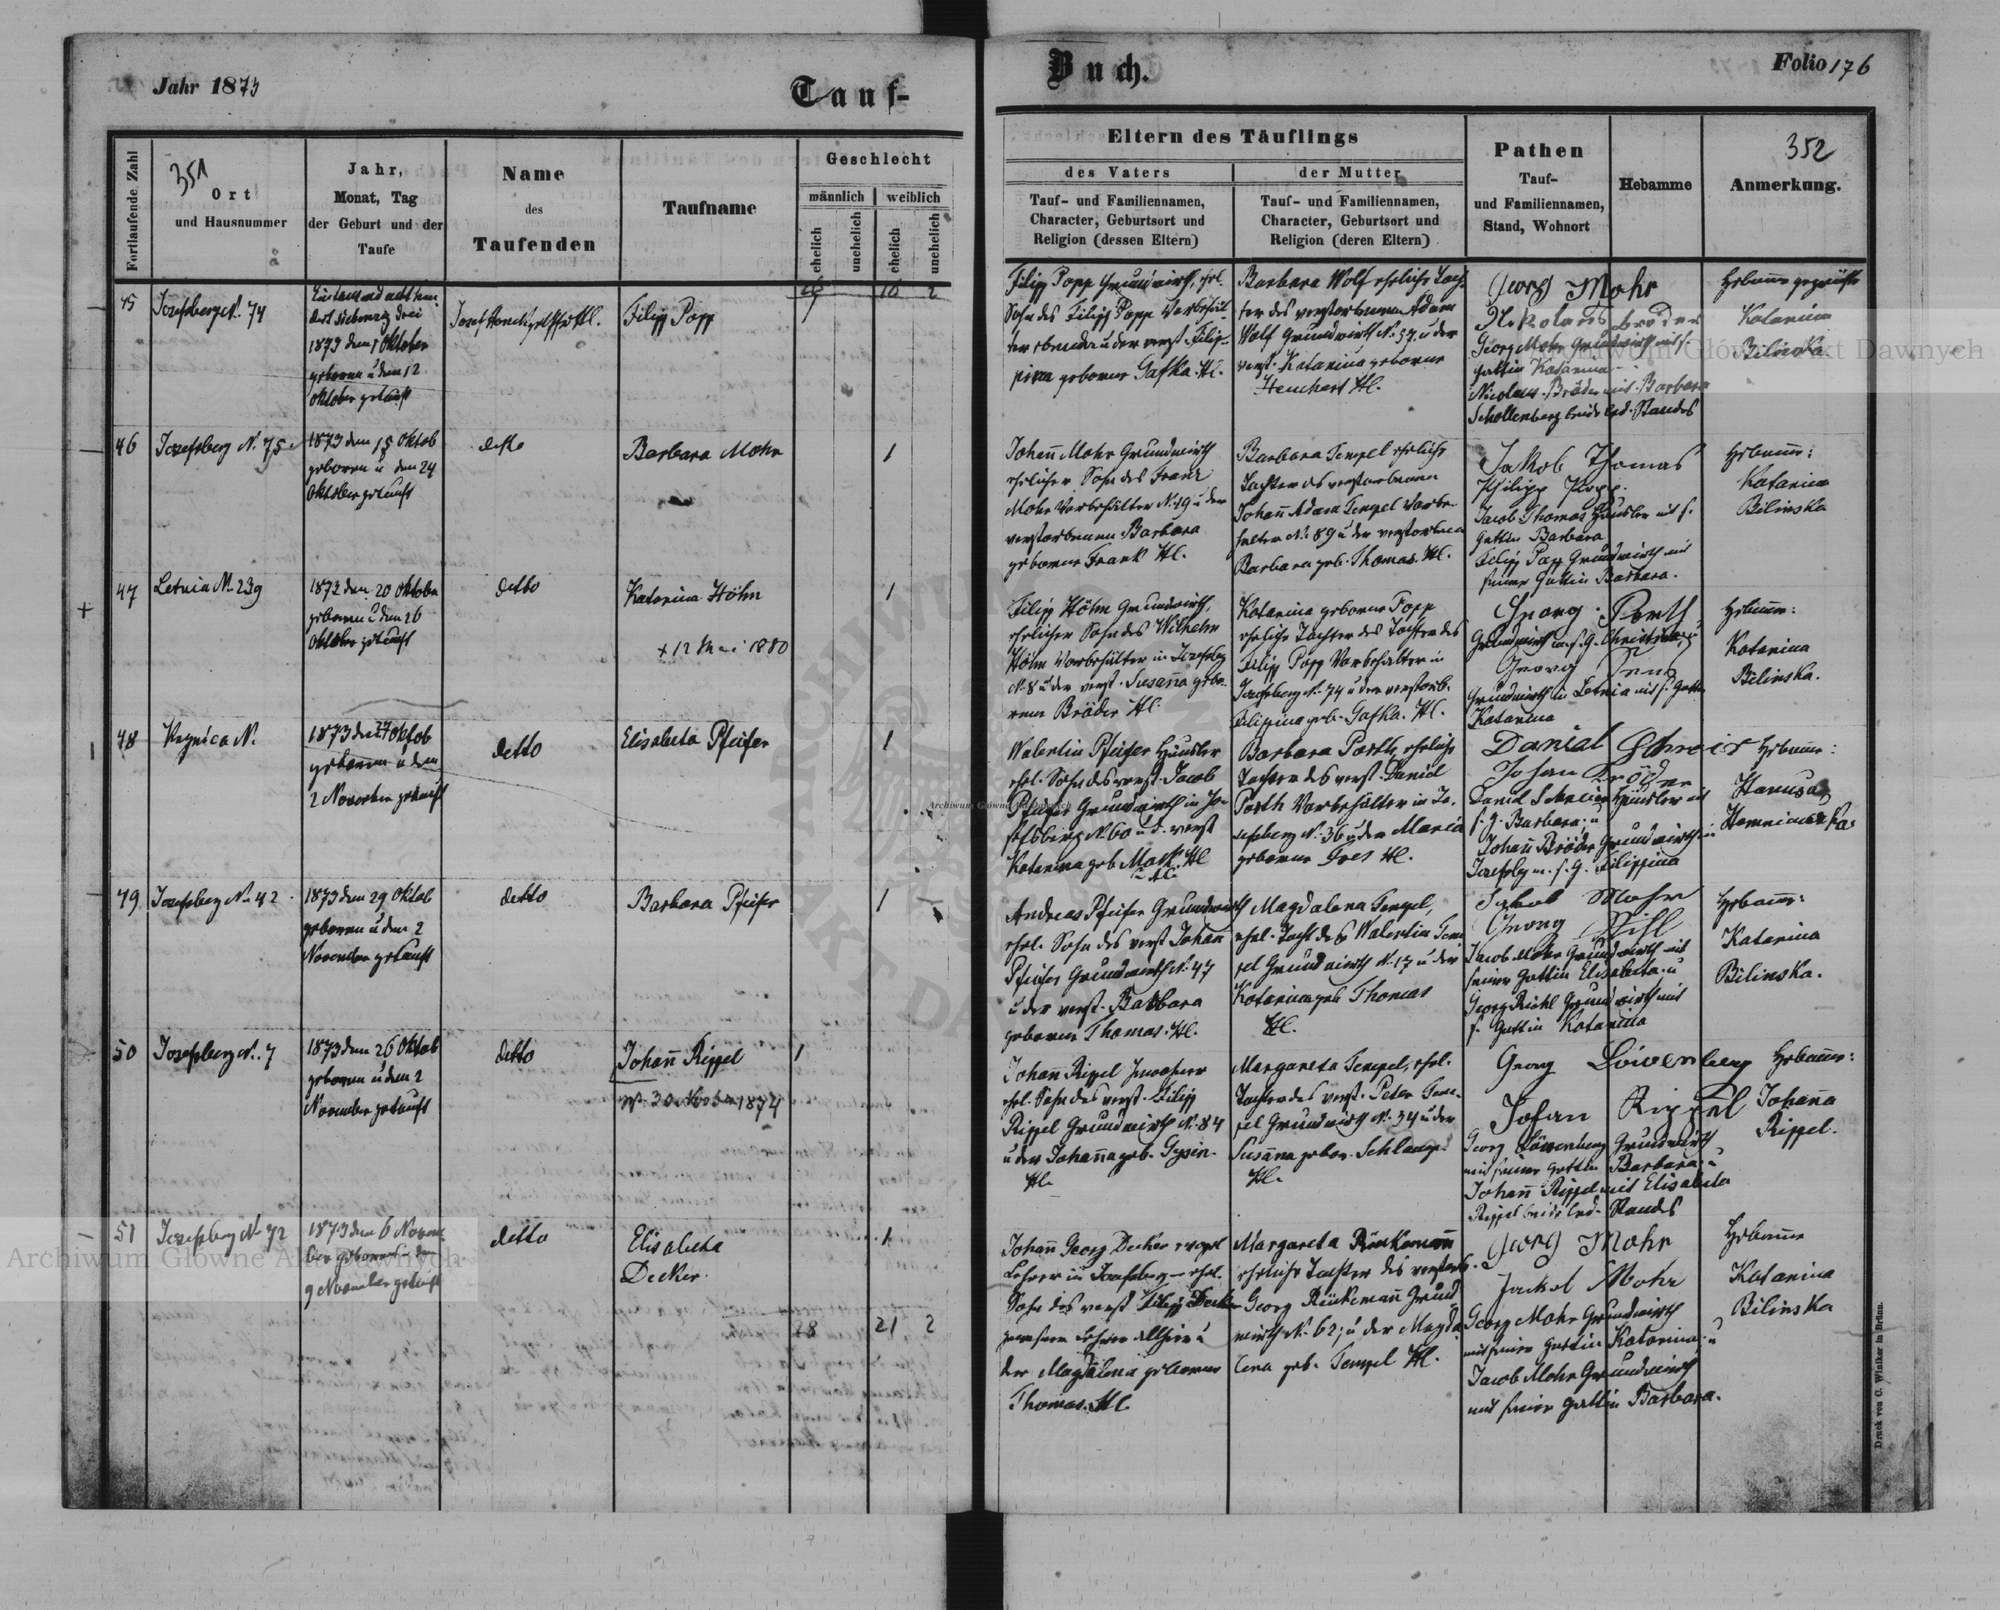 Jahr 1873
Tauf-
Buch.
Folio 176
Fortlaufende Zahl
351
Ort
und Hausnummer
Jahr,
Monat, Tag
der Geburt und der
Taufe
Name
des
Taufenden
Taufname
Geschlecht
männlich
weiblich
ehelich
unehelich
ehelich
unehelich
Eltern des Täuflings
des Vaters
der Mutter
Tauf- und Familiennamen,
Character, Geburtsort und
Religion (dessen Eltern)
Tauf- und Familiennamen,
Character, Geburtsort und
Religion (deren Eltern)
Pathen
Tauf-
und Familiennamen,
Stand, Wohnort
Hebamme
352
Anmerkung.
45
Josefsberg N. 74
1873 den 1 Oktober
geboren u den 12
Oktober getauft
Filipp Popp
Filipp Popp Grundwirth, ehl.
Sohn des Filipp Popp
geborne Gafka. Hl.
Barbara Wolf eheliche Toch-
ter des verstorbenen Adam
Wolf Grundwirth N. 57. u der
verst. Katarina geborne
Georg Mohr
Nikolaus Bröder
Georg Mohr Grundwirth mit s.
Gattin Katarina
Nicolaus Bröder mit Barbara
Schollenberg beide led. Standes
Hebamme geprüfte
Katarina
Bilinska
46
Josefsberg N. 75
1873 den 18 Oktob
geboren u den 24
Oktober getauft
detto
Barbara Mohr
1
Johann Mohr Grundwirth
ehelicher Sohn des Franz
Mohr Vorbehälter N. 49 u der
verstorbenen Barbara
geborne Frank Hl.
Barbara Tempel eheliche
Tochter des verstorbenen
Johann Adam Tempel Vorbe-
halter N. 89 u der verstorbenen
Barbara geb. Thomas. Hl.
Jakob Thomas
Philipp Popp.
Jacob Thomas Häusler mit s.
Gattin Barbara
Filipp Popp Grundwirth mit
seiner Gattin Barbara.
Hebamme:
Katarina
Bilinska
47
Letnia N. 239
1873 den 20 Oktober
geboren u den 26
Oktober getauft
detto
Katarina Höhn
+ 12 Mai 1880
1
Filipp Höhn Grundwirth,
ehelicher Sohn des Wilhelm
Höhn Vorbehälter in Josefsberg
N. 8 u der verst. Susanna gebo-
rene Bröder Hl.
Katarina geborne Popp
eheliche Tochter des Tochter des
Filipp Popp Vorbehalter in
Josefsberg N. 74 u der verstorb.
Filippina geb. Gafka. Hl.
Georg Porth
Georg
Grundwirth in Letnia mit s. Gattin
Katarina
Hebamme:
Katarina
Bilinska.
48
N.
1873 den 27 Oktob
geboren u den
2 November getauft
detto
Elisabeta Pfeifer
1
Walentin Pfeifer Häusler
ehl. Sohn des verst. Jacob
Pfeifer Grundwirth in Jo-
sefsberg N. 60 u. d. verst
Katarina geb. Mock. Hl
Barbara Porth, eheliche
Tochter des verst. Daniel
Porth Vorbehälter in Jo-
sefsberg N. 36 u der Maria
geborne Hl.
Daniel Schreier
Johan Bröder
Daniel Schreier Häusler mit
s. G. Barbara; u
Johann Bröder Grundwirth in
Josefsberg m. s. G. Filippina
Hebamme:
49
Josefsberg N. 42
1873 den 29 Oktob
geboren u den 2
November getauft
detto
Barbara Pfeifer
1
Andreas Pfeifer Grundwirth
ehl. Sohn des verst Johan
Pfeifer Grundwirth N. 47
u der verst. Barbara
geboren Thomas. Hl.
Magdalena Tempel,
ehel. Tocht des Walentin Tem-
pel Grundwirth N. 17 u der
Katarina geb Thomas
Hl.
Jakob Mohr
Georg
Jacob Mohr Grundwirth mit
seiner Gattin Elisabeta. u
Grundwirth mit
s. Gattin Katarina
Hebamme:
Katarina
Bilinska.
50
Josefsberg N. 7
1873 den 26 Oktob
geboren u den 2
November getauft
detto
Johann Rippel
1
Johann Rippel
ehl. Sohn des verst. Filipp
Rippel Grundwirth N. 84
u der Johanna geb. Gysin.
Hl.
Margareta Tempel, ehel.
Tochter des verst. Peter Tem-
pel Grundwirth N. 34 u der
Susanna gebor. Schlamp.
Hl.
Georg Löwenberg
Johan Rippel
Georg Löwenberg Grundwirth
mit seiner Gattin Barbara; u
Johann Rippel mit Elisabeta
Rippel beide led. Standes
Hebamme:
Johanna
Rippel.
51
Josefsberg N. 72
1873 den 6 Novem-
ber geboren u den
9 November getauft
detto
Elisabeta
Decker.
1
28
21
2
Johann Georg Decker evgel
Lehrer in Josefsberg ehl.
Sohn des verst Filipp Decker
gewesener Lehrer allhier u
der Magdalena geborne
Thomas. Hl.
Margareta Rinkemann
eheliche Tochter des verstorb.
Georg Rinkemann Grund
wirth N. 62; u der Magda
lena geb. Tempel Hl.
Georg Mohr
Jackob Mohr
Georg Mohr Grundwirth
mit seiner Gattin Katarina; u
Jacob Mohr Grundwirth
mit seiner Gattin Barbara.
Hebamme
Katarina
Bilinska
Druck von C. Winiker in Brünn.
Archiwum Główne Akt Dawnych